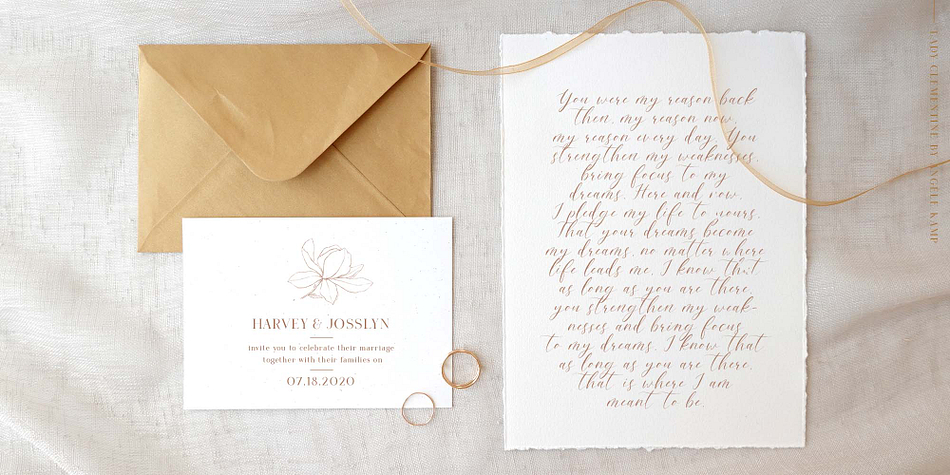 HARVEY & JOSSLYN
invite you to celebrate their marriage
together with their families on
07.18.2020
You were my reason back
then, my reason now,
my reason every day. You
strengthen my weaknesses,
bring focus to my
dreams. Here and now,
I pledge my life to yours.
That your dreams become
my dreams, no matter where
life leads me. I know that
as long as you are there,
you strengthen my weak-
nesses and bring focus
to my dreams. I know that
as long as you are there,
that is where I am
meant to be.
LADY CLEMENTINE BY ANGELE KAMP